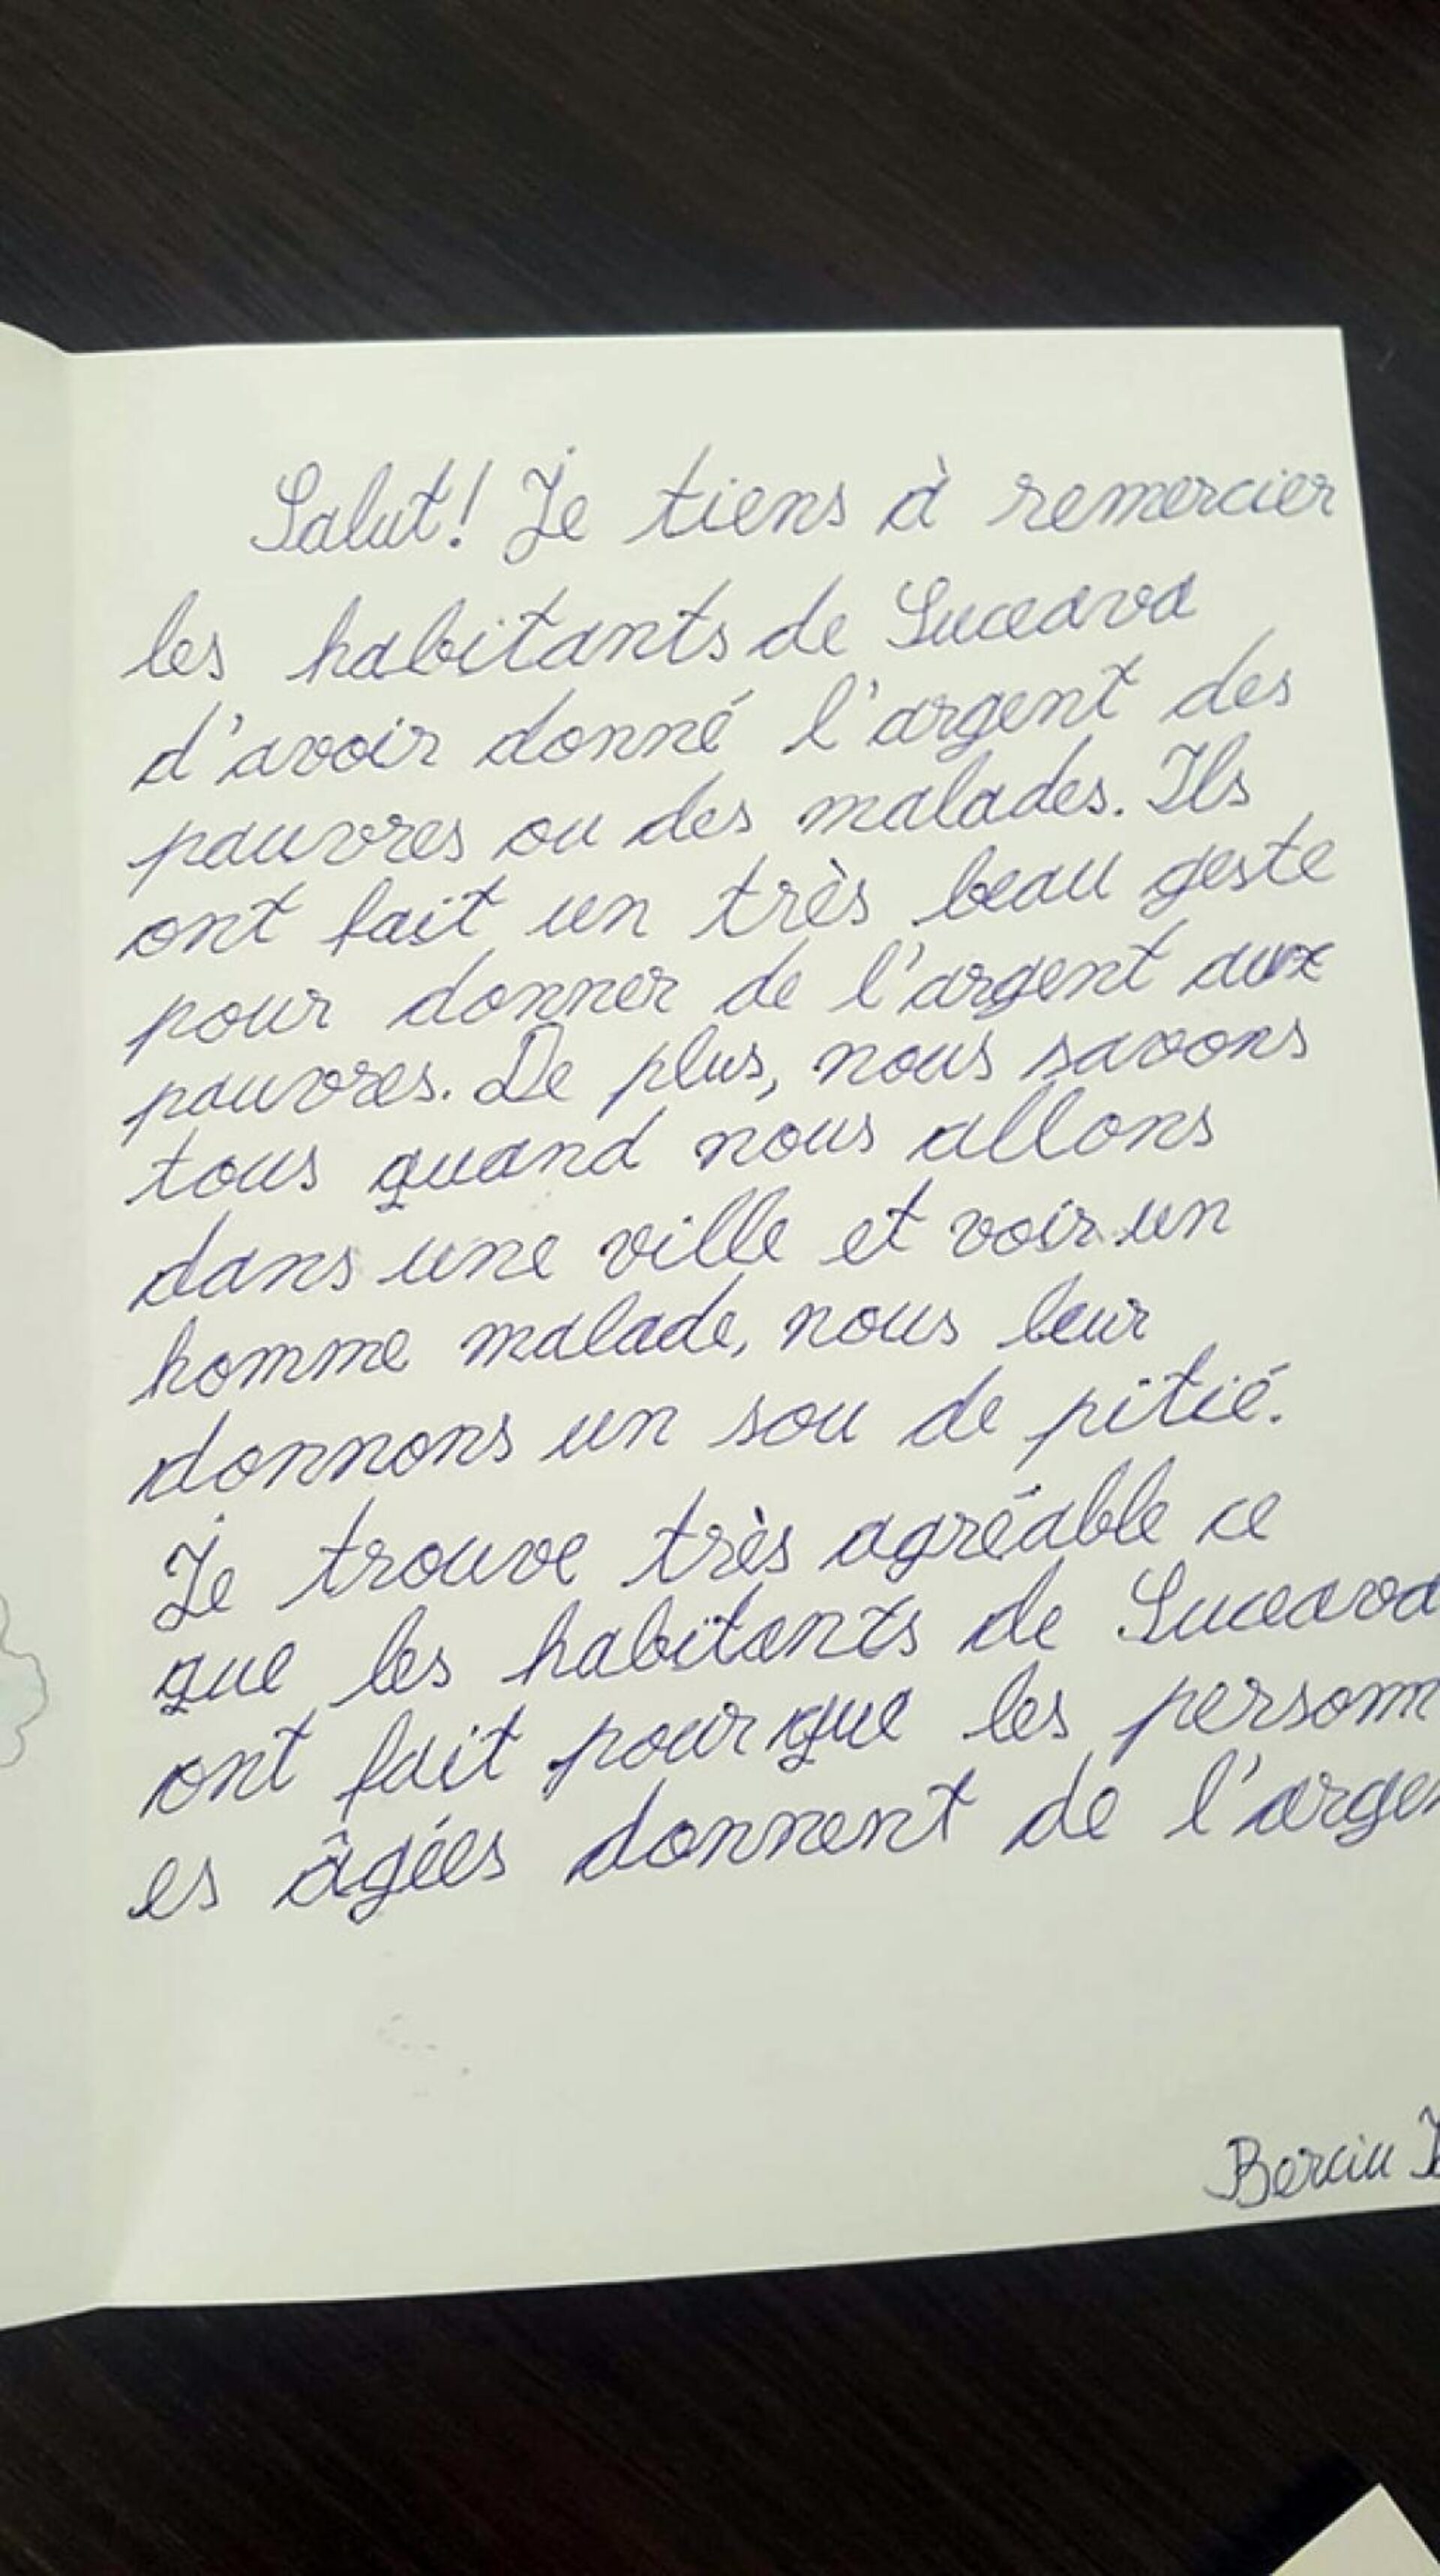 Salut! Je tiens à remercier
les habitants de Suceava
d'avoir donné l'argent des
pauvres ou des malades. Ils
ont fait un très beau geste
pour donner de l'argent aux
pauvres. De plus, nous savons
tous quand nous allons
dans une ville et voir un
homme malade, nous leur
donnons un sou de pitié.
Je trouve très agréable ce
que les habitants de Suceava
ont fait pour que les personn
es âgées donnent de l'argen
Berciu